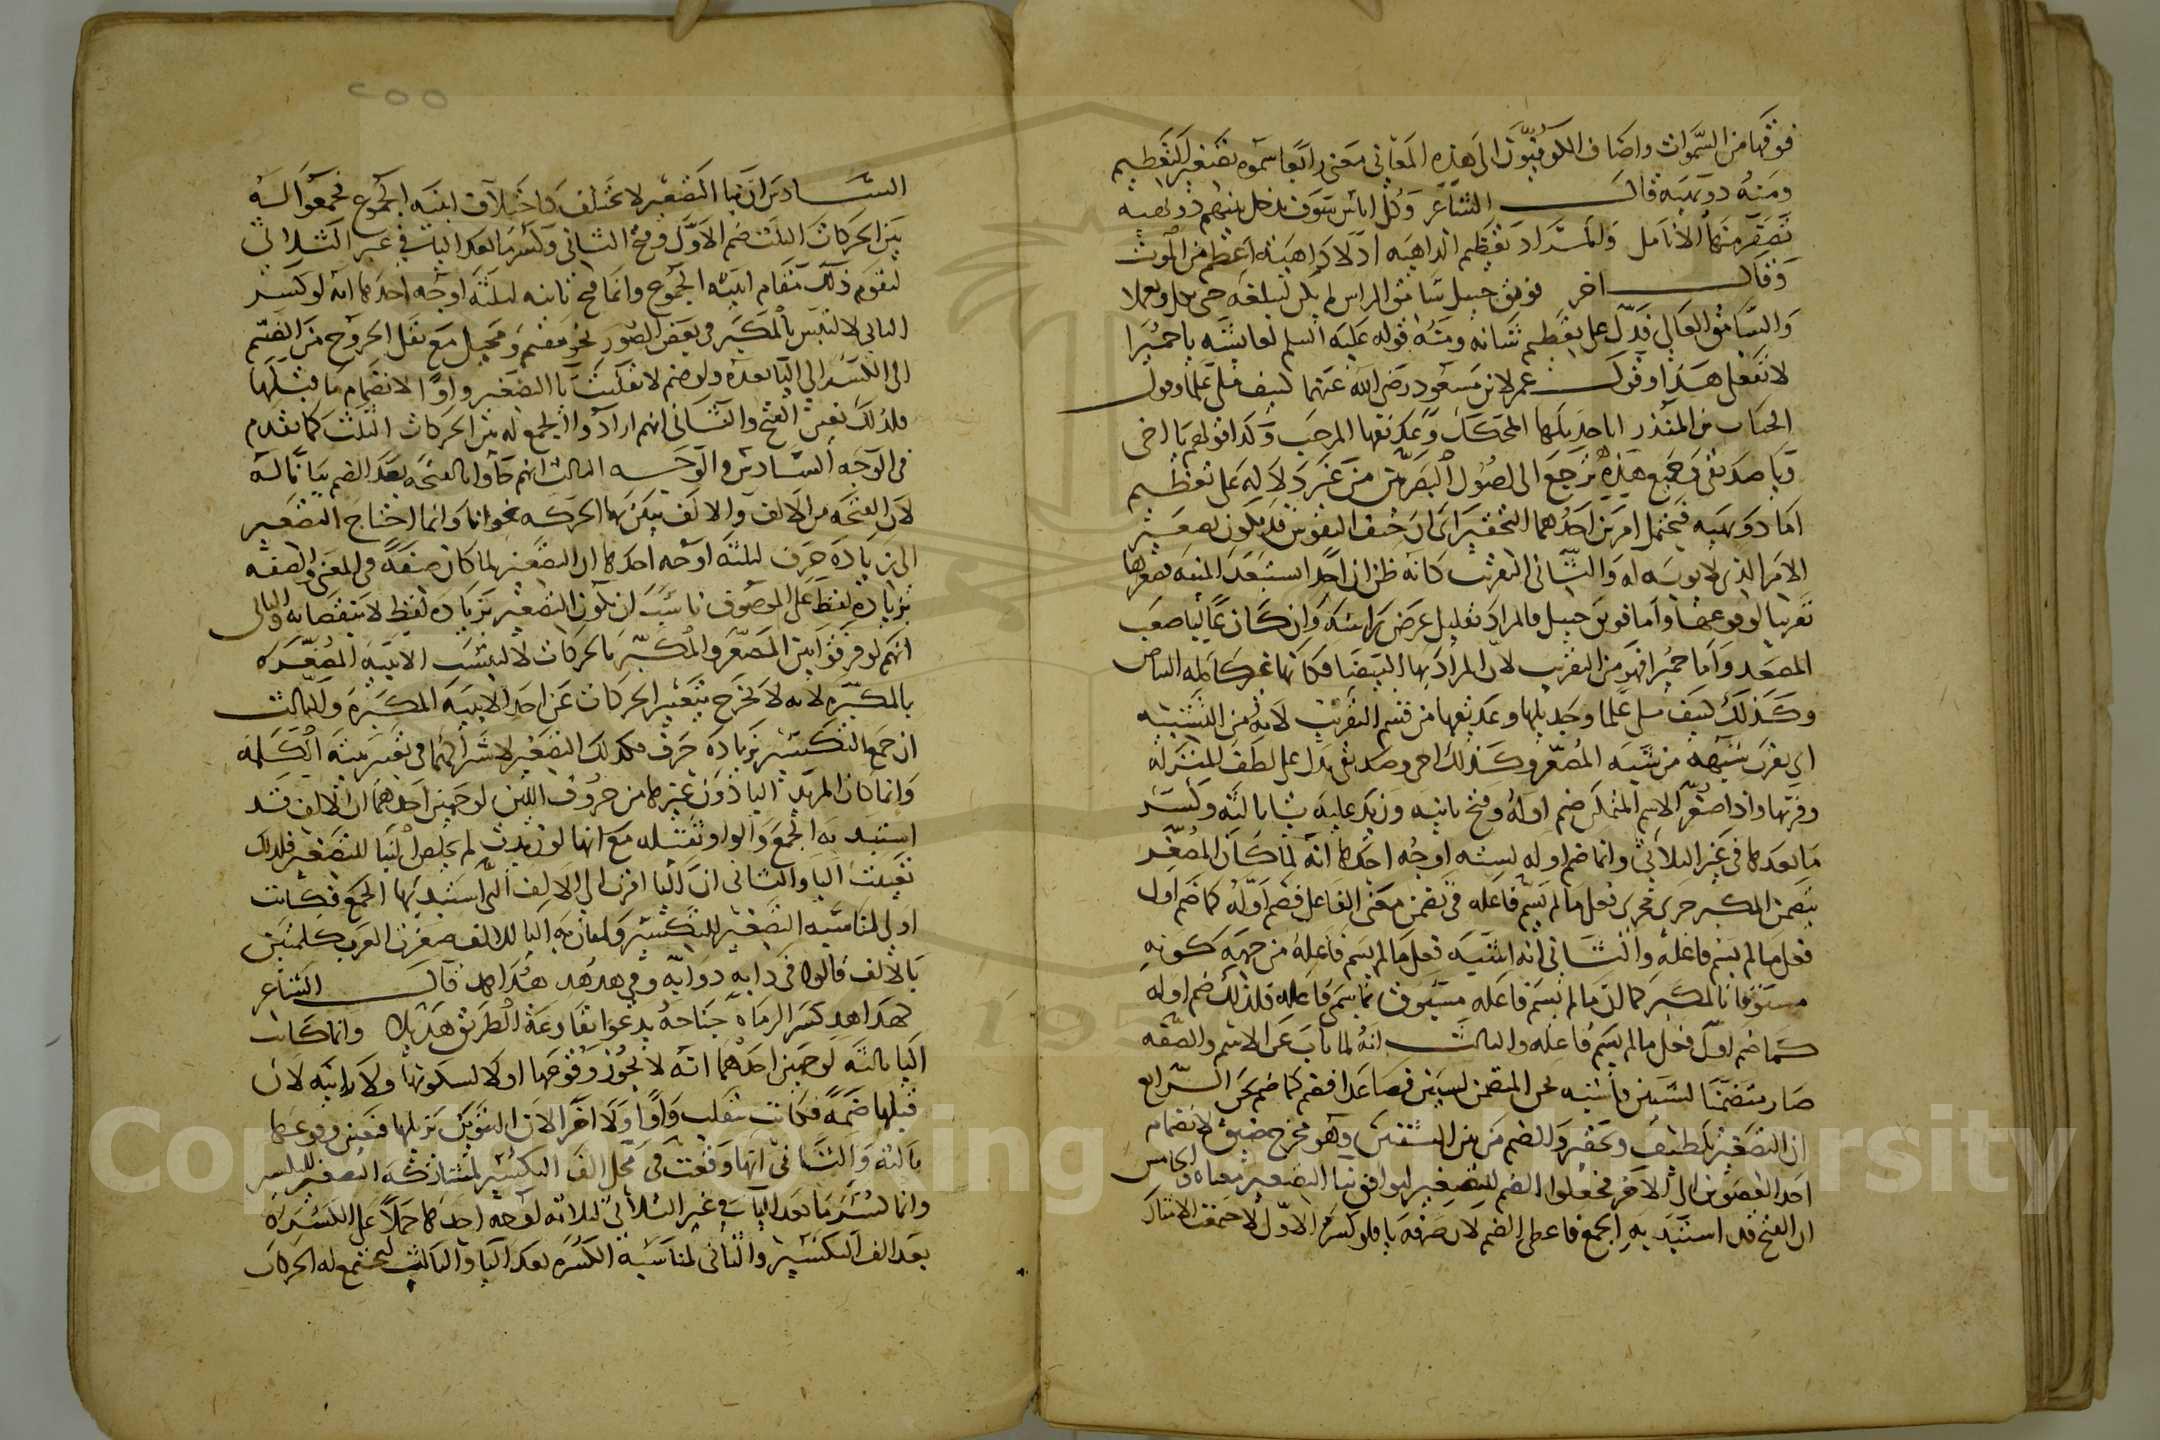 فوقها من السموات واضاف الكوفيون الى هذه المعاني معنى رابعا سموه تصغير التعظيم
ومنه دويهية قال الشاعر وكل اناس سوف تدخل بينهم دويهية
تصفر منها الانامل والمراد تعظيم الداهية اذ لا داهية اعظم من الموت
وقال اخر فويق جبيل شامق الراس لم يكن لتبلغه حتى تكل وتعملا
والشامق العالي فدل على تعظيم شانه ومنه قوله عليه السلم لعايشه يا حميرا
لا تفعلي هذا وقول عمر لابن مسعود رضي الله عنهما كنيف ملى علما وقول
الحباب بن المنذر انا جذيلها المحكك وعذيقها المرجب وكذا قولهم يا اخي
ويا صديقي وجميع هذه ترجع الى اصول البصريين من غير دلالة على تعظيم
اما دويهية فيحتمل امرين احدهما التحقير اي ان حتف النفوس قد يكون بصغير
الامر الذي لا يوبه له والثاني التقريب كانه ظن ان احدا استبعد المنية فصغرها
تقريبا لوقوعها واما فويق جبيل فالمراد تقليل عرض راسه وان كان عاليا صعب
المصعد واما حميرا فهو من التقريب لان المراد بها البيضا فكانها غير كاملة البياض
وكذلك كنيف ملى علما وجذيلها وعذيقها من قسم التقريب لانه من التشبيه
اي يقرب شبهه من شبه المصغر وكذلك اخي وصديقي يدل على لطف المنزلة
وقربها واذا صغر الاسم المتمكن ضم اوله وفتح ثانيه وزيد عليه يا ثالثة وكسر
ما بعدها في غير الثلاثي وانما ضم اوله لستة اوجه احدها انه لما كان المصغر
يتضمن المكبر جرى مجرى فعل ما لم يسم فاعله في تضمن معنى الفاعل فضم اوله كما ضم اول
فعل ما لم يسم فاعله والثاني انه اشبه فعل ما لم يسم فاعله من جهة كونه
مسبوقا بالمكبر كما ان ما لم يسم فاعله مسبوق بما سمى فاعله فلذلك ضم اوله
كما ضم اول فعل ما لم يسم فاعله والثالث انه لما ناب عن الاسم والصفة
صار متضمنا لشيين فاشبه نحن المتضمن لشيين فصاعدا فضم كما ضم نحن الرابع
ان التصغير تلطيف وتحقير والضم من بين الشفتين وهو مخرج ضيق لانضمام
احد العضوين الى الاخر فجعلوا الضم للتصغير ليوافق بنا التصغير معناه والخامس
ان الفتح قد استبد به الجمع فاعطى الضم لان ضده يا فلو كسر الاول لاجتمعت الامثال
السادس ان بنا التصغير لا يختلف كاختلاف ابنية الجموع فجمعوا له
بين الحركات الثلث ضم الاول وفتح الثاني وكسر ما بعد اليا في غير الثلاثي
ليقوم ذلك مقام ابنية الجموع وانما فتح ثانيه لثلثة اوجه احدها انه لو كسر
الثاني لالتبس بالمكبر في بعض الصور نحو مفيتم ومحيل مع ثقل الخروج من الضم
الى الكسر الى اليا بعده ولو ضم لانقلبت يا التصغير واوا لانضمام ما قبلها
فلذلك تعين الفتح والثاني انهم ارادوا الجمع له بين الحركات الثلث كما تقدم
في الوجه السادس والوجه الثالث انهم جاوا بالفتحة بعد الضم بيانا له
لان الفتحة من الالف والالف تبين بها الحركة نحو انا وانما احتاج التصغير
الى زيادة حرف لثلثة اوجه احدها ان التصغير لما كان صفة في المعنى والصفة
بزيادة لفظ على الموصوف ناسب ان يكون التصغير بزيادة لفظ لا بنقصانه والثاني
انهم لو فرقوا بين المصغر والمكبر بالحركات لالتبست الابنية المصغرة
بالمكبرة لانه لا يخرج بتغيير الحركات عن احد الابنية المكبرة والثالث
ان جمع التكسير بزيادة حرف فكذلك التصغير لاشتراكهما في تغير بنية الكلمة
وانما كان المزيد اليا دون غيرها من حروف اللين لوجهين احدهما ان الالف قد
استبد به الجمع والواو ثقيلة مع انها لو زيدت لم يخلص البنا للتصغير فلذلك
تعينت اليا والثاني ان اليا اقرب الى الالف التي استبد بها الجمع فكانت
اولى لمناسبة التصغير للتكسير ولمعاقبة اليا للالف صغرت العرب كلمتين
بالالف قالوا في دابة دوابة وفي هدهد هداهد قال الشاعر
كهداهد كسر الرماة جناحه يدعو بقارعة الطريق هديلا وانما كانت
اليا ثالثة لوجهين احدهما انه لا يجوز وقوعها اولا لسكونها ولا ثانية لان
قبلها ضمة فكانت تنقلب واوا ولا اخرا لان التنوين يزيلها فتعين وقوعها
ثالثة والثاني انها وقعت في محل الف التكسير لمشاركة التصغير للتكسير
وانما كسر ما بعد اليا في غير الثلاثي لثلاثة اوجه احدها حملا على الكسرة
بعد الف التكسير والثاني لمناسبة الكسرة بعد اليا والثالث ليجتمع له الحركات